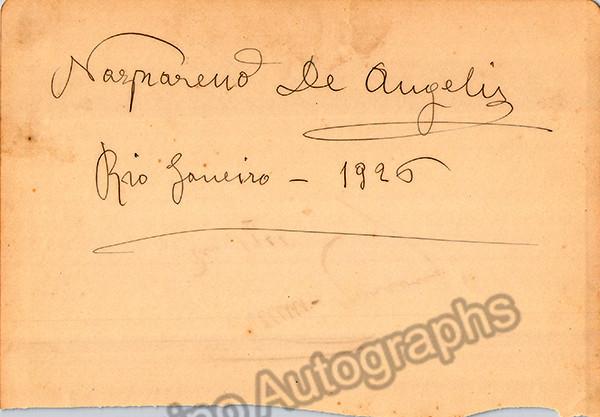 Nazzareno De Angelis
Rio Janeiro - 1926
ino Autographs